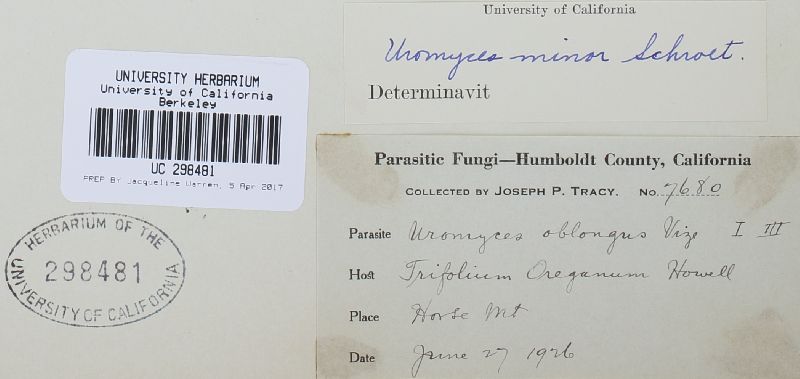 University of California
Uromyces minor Schroet.
Determinavit
UNIVERSITY HERBARIUM
University of California
Berkeley
UC 298481
PREP BY Jacqueline Warren, 5 Apr 2017
HERBARIUM OF THE
298481
UNIVERSITY OF CALIFORNIA
Parasitic Fungi—Humboldt County, California
COLLECTED BY JOSEPH P. TRACY. No. 7680
Parasite Uromyces oblongus Vize I III
Host Trifolium Oreganum Howell
Place Horse Mt
Date June 27 1926